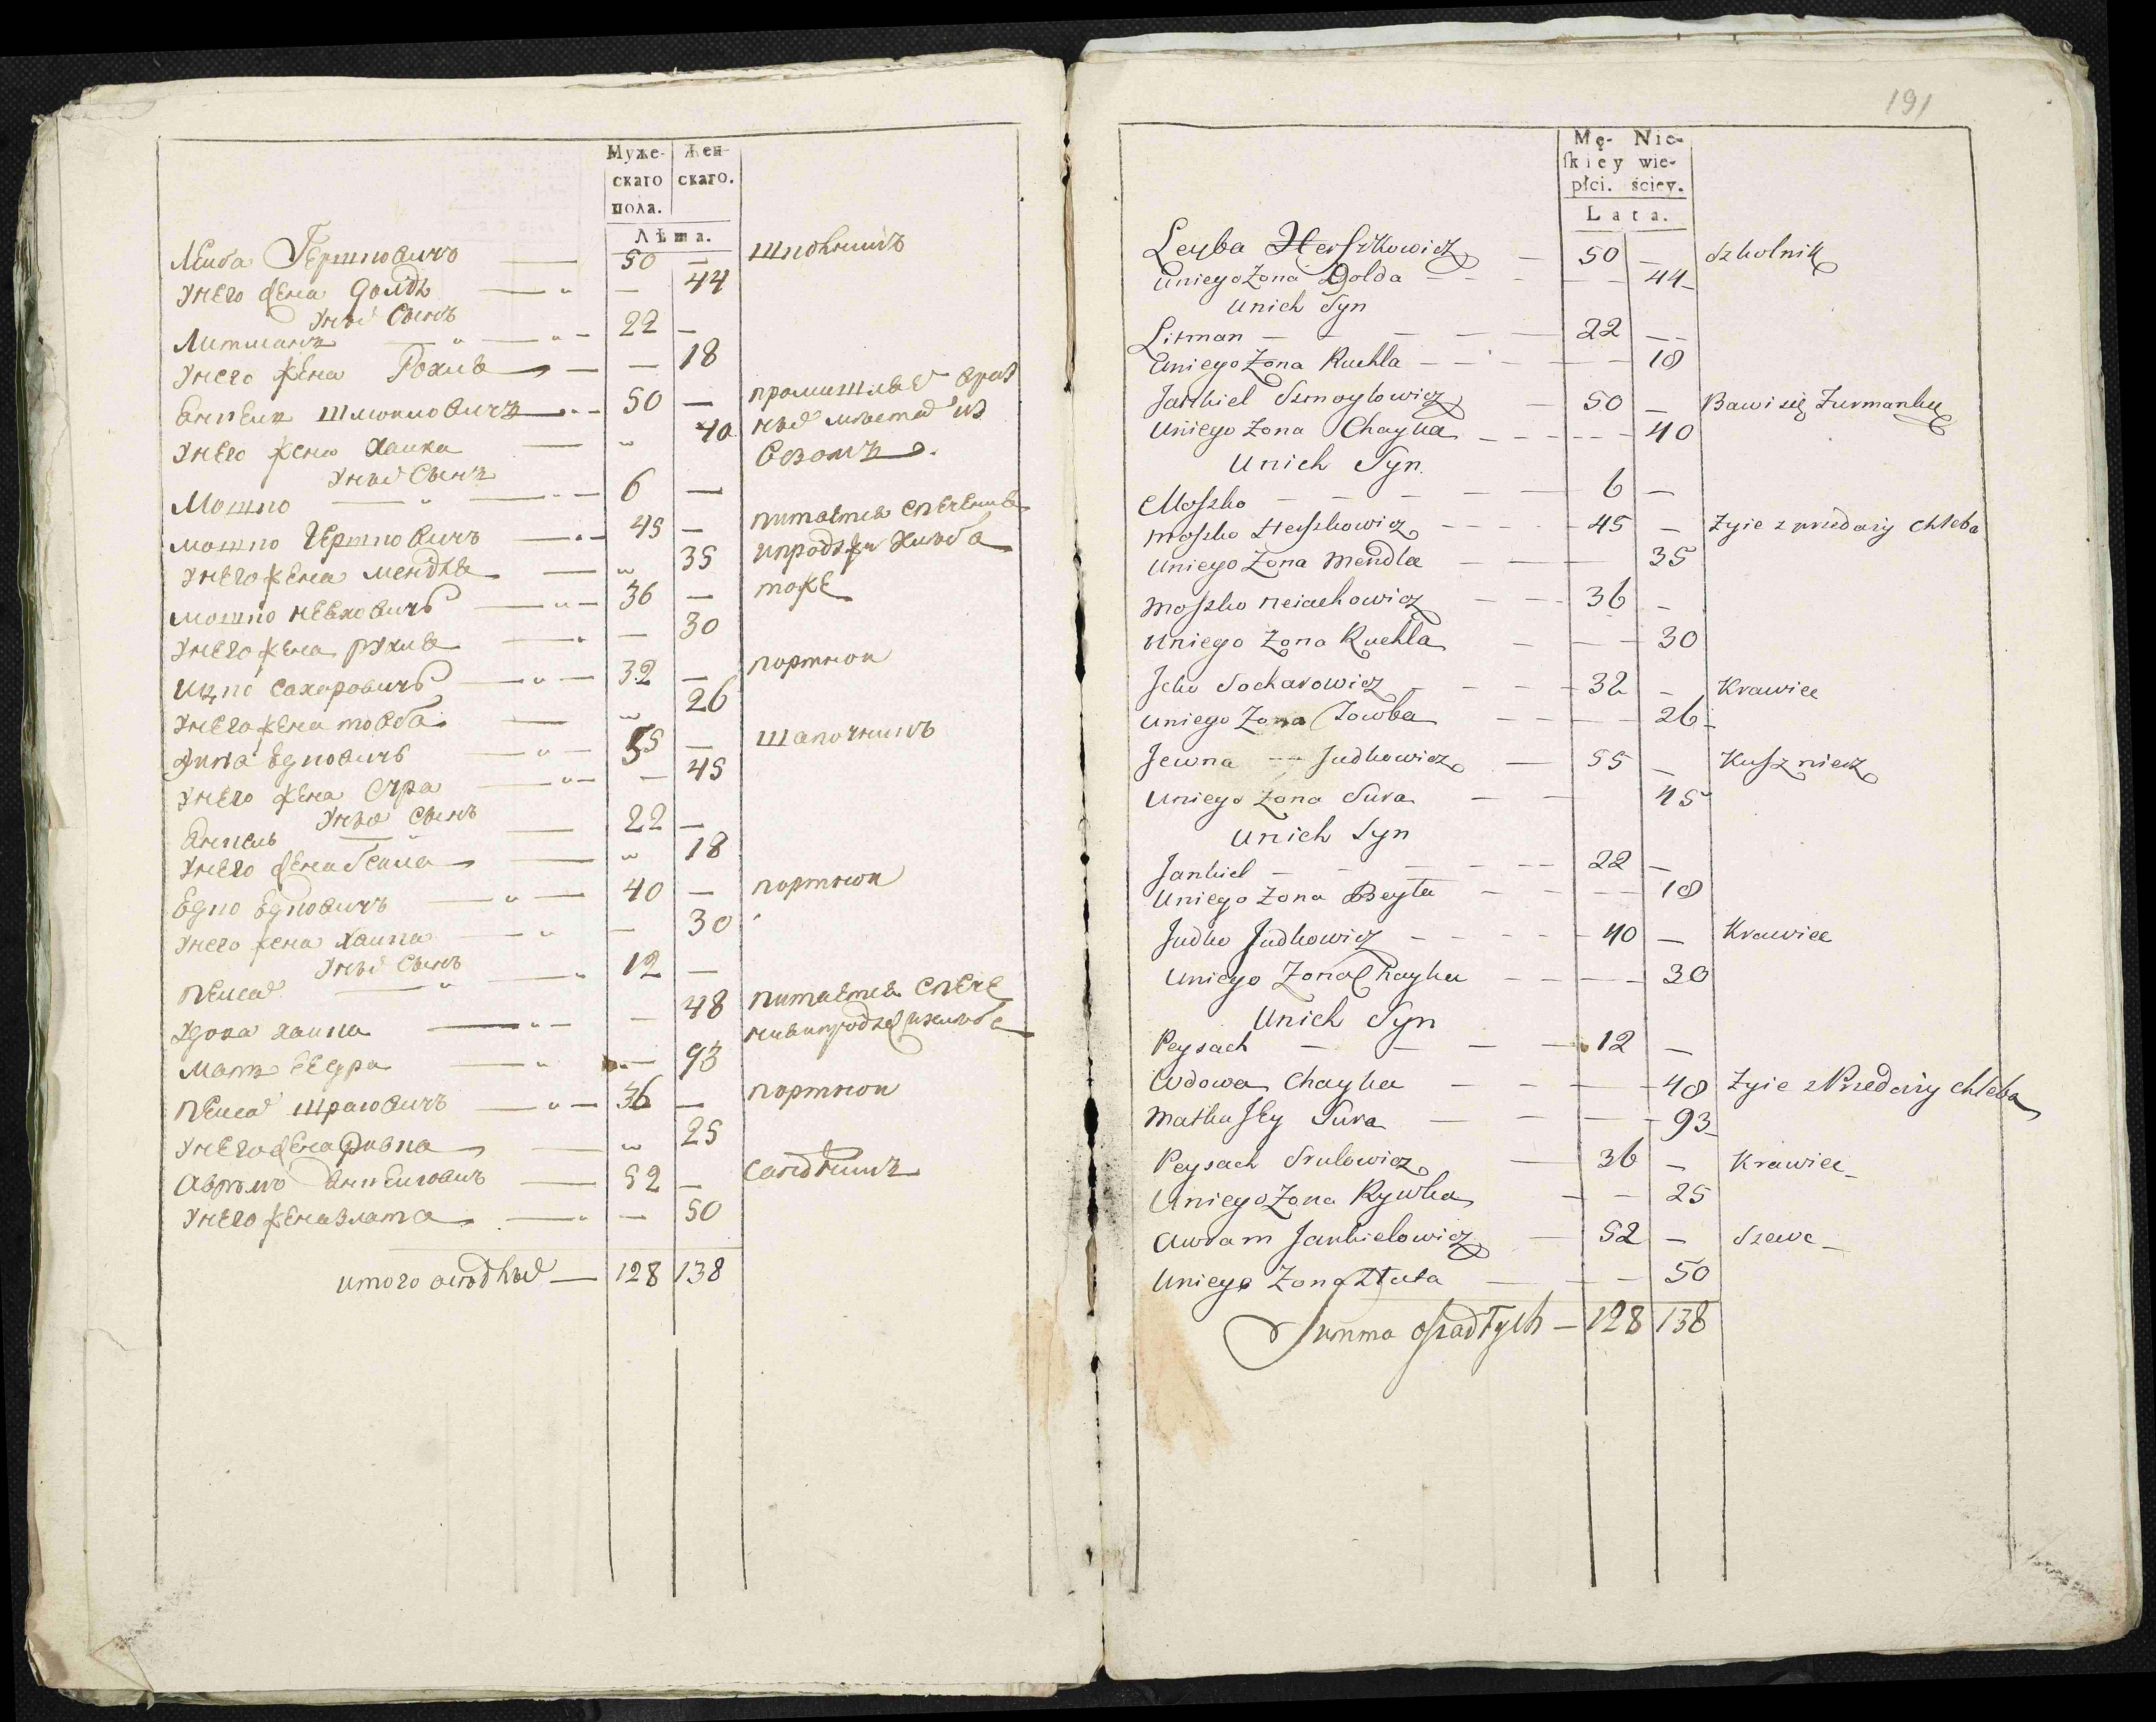 Муже- Жен-
скаго скаго.
пола.
Лѣта.
Лейба Гершковичъ — 50 — школникъ
Унего жена Долда — 44
Унихъ Сынъ
Литманъ — 22 —
Унего жена Рохля — 18
Янкель Шмойловичъ — 50 —
Унего жена Хайка — 40
возомъ.
Унихъ Сынъ
Мошко — 6 —
Мошко Гершковичъ — 45 — питается спечения
Унего жена Мендля — 35 ипродажи хлѣба
Мошко Невховичъ — 36 — тоже
Унего жена Рухля — 30
Ицко Сахаровичъ — 32 — портной
Унего жена Товба — 26
Юдковичъ — 55 — шапочникъ
Унего жена Сура — 45
Унихъ Сынъ
Янкель — 22 —
Унего жена Бейла — 18
Юдко Юдковичъ — 40 — портной
Унего жена Хайка — 30
Унихъ Сынъ
Пейсах — 12 —
Удова Хайка — 48 питается спече
Мать — 93
Пейсах Шраловичъ — 36 — портной
Унего жена Ривка — 25
Аврамъ Янкеловичъ — 52 —
Унего жена Злата — 50
итого — 128 138
191
Mę- Nie-
skiey wie-
płci. ściey.
Lata.
Leyba Herszkowicz — 50 — Szkolnik
Uniego Zona Dolda — 44
Unich Syn
Litman — 22 —
Uniego Zona Ruchla — 18
Jankiel Szmoylowicz — 50 — Bawi się Furmanką
Uniego Zona Chayka — 40
Unich Syn
Moszko — 6 —
Moszko Herszkowicz — 45 — Zyie z przedazy Chleba
Uniego Zona Mendla — 35
Moszko Neiachowicz — 36 —
Uniego Zona Ruchla — 30
Jcko Socharowicz — 32 — Krawiec
Uniego Zona Towba — 26
Jewna — Judkowicz — 55 — Kusznierz
Uniego Zona Sura — 45
Unich Syn
Jankiel — 22 —
Uniego Zona Beyla — 18
Judko Judkowicz — 40 — Krawiec
Uniego Zona Chayka — 30
Unich Syn
Peysach — 12 —
Wdowa Chayka — 48 Zyie z Przedazy Chleba
Matka Jey Sura — 93
Peysach Srulowicz — 36 — Krawiec
Uniego Zona Rywka — 25
Awram Jankielowicz — 52 — Szewc
Uniego Zona Złata — 50
Summa osiadłych — 128 138